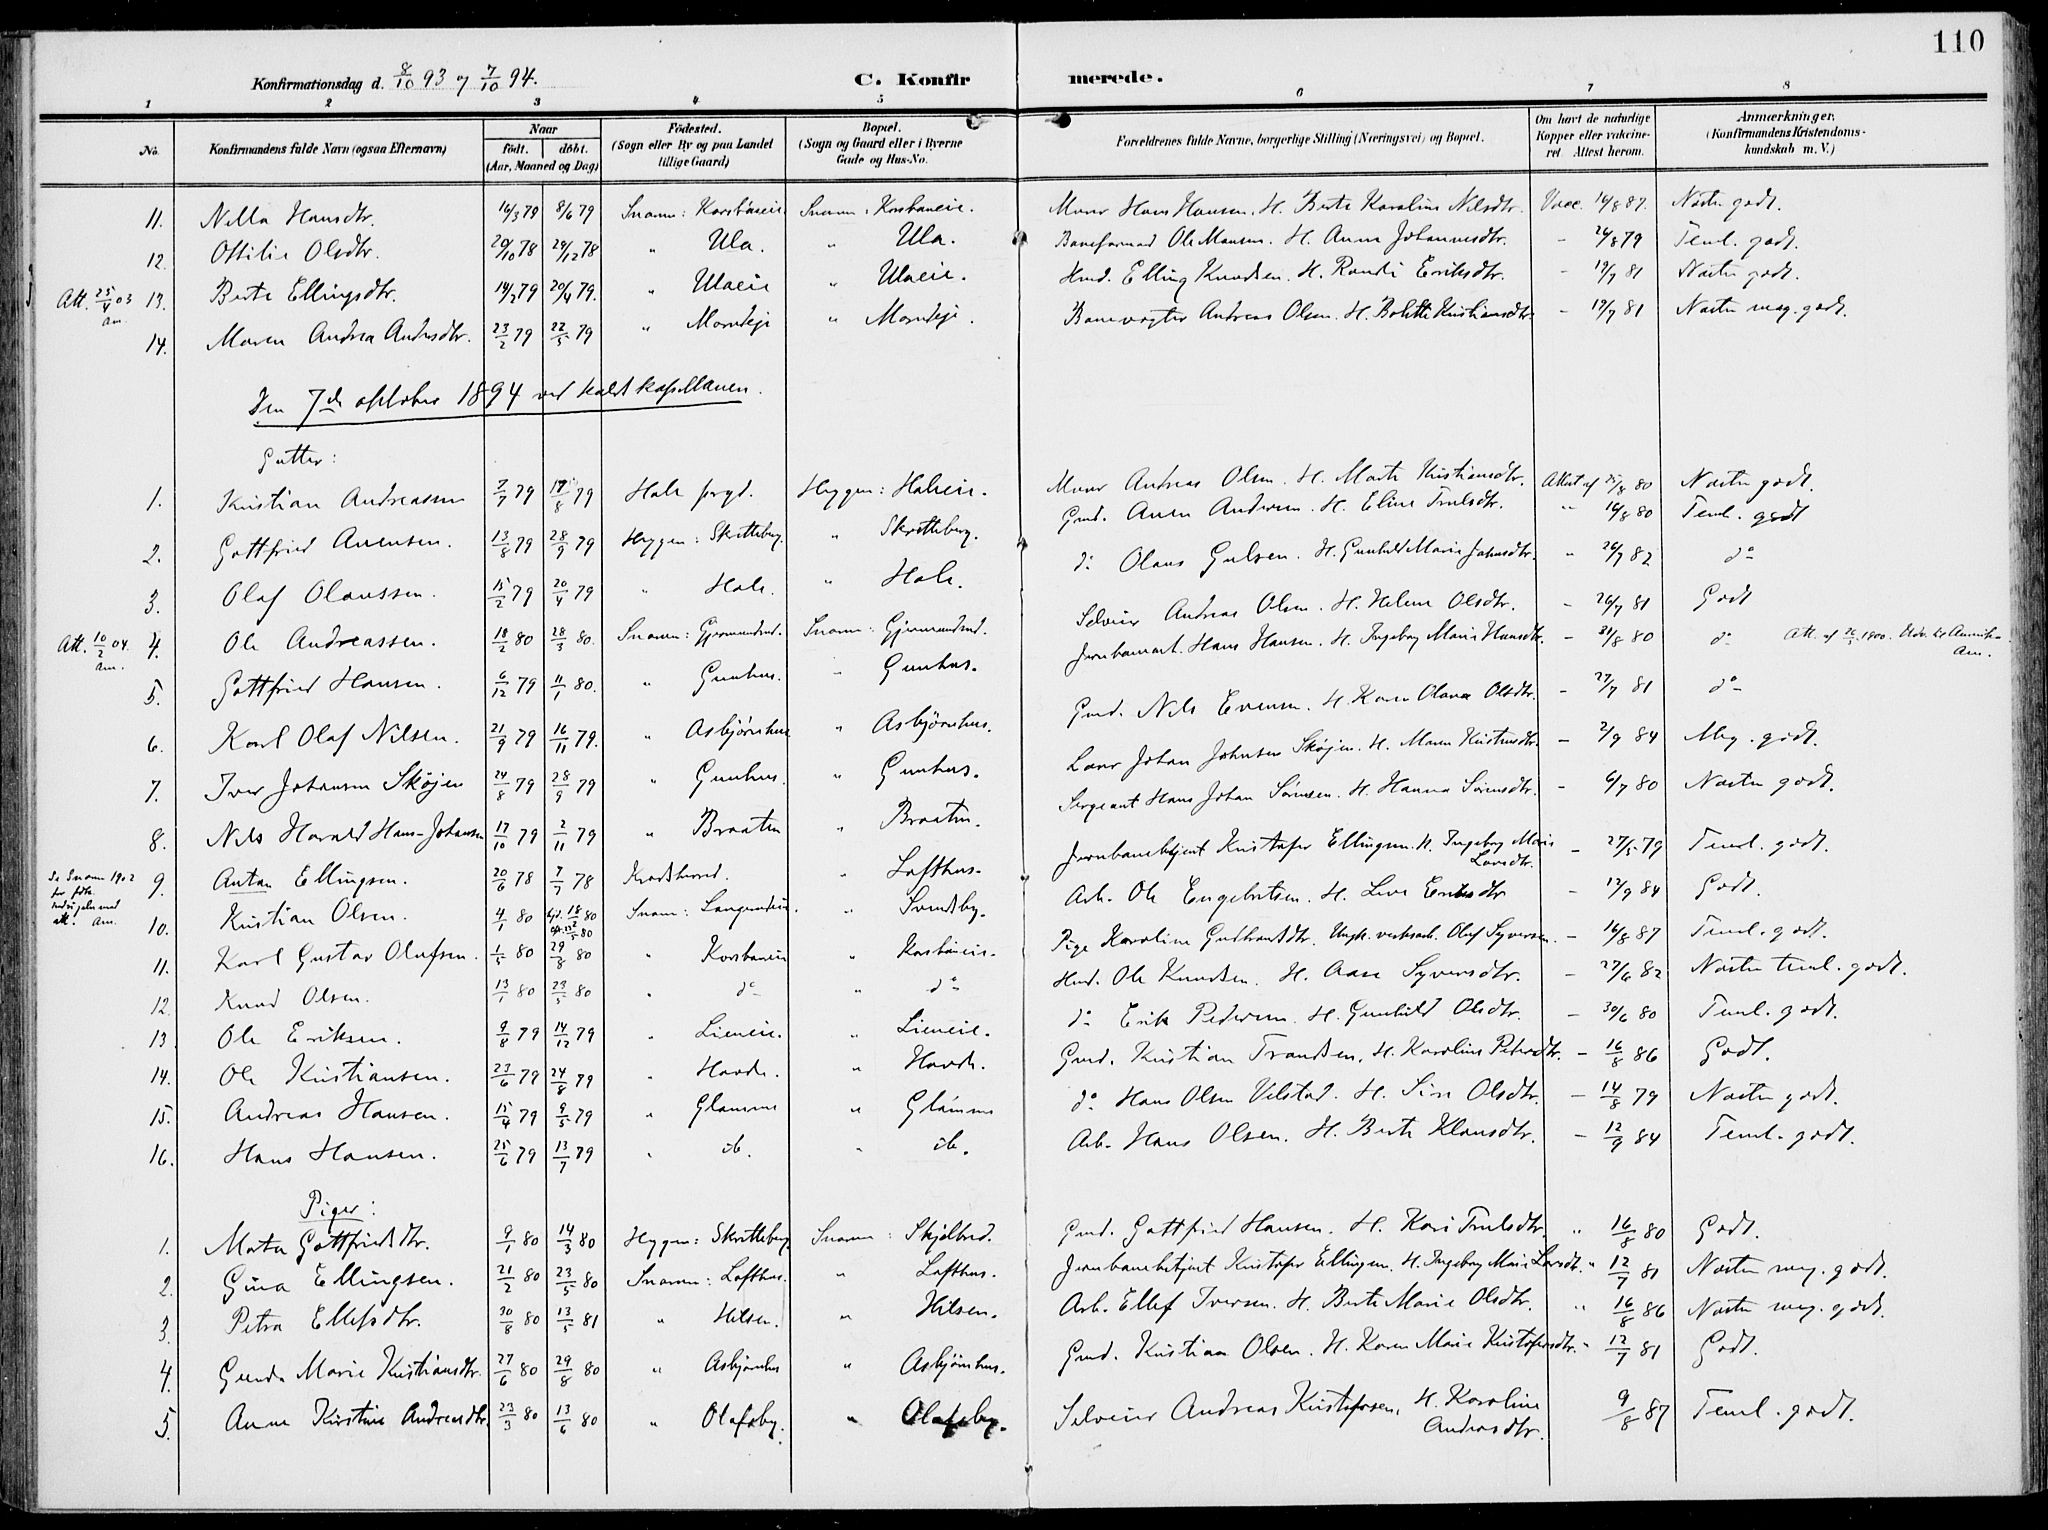 110
Konfirmationsdag d. 8/10 93 og 7/10 94.
C. Konfirmerede.
1 2 3 4 5 6 7 8
No.
Konfirmandens fulde Navn (ogsaa Efternavn)
Naar
födt. döbt.
(Aar, Maaned og Dag)
Födested.
(Sogn eller By og paa Landet
tillige Gaard)
Bopæl.
(Sogn og Gaard eller i Byerne
Gade og Hus-No.
Forældrenes fulde Navne, borgerlige Stilling (Næringsvei) og Bopæl.
Om havt de naturlige
Kopper eller vakcine-
ret. Attest herom.
Anmærkninger.
(Konfirmandens Kristendoms-
kundskab m. V.)
11. Nella Hansdtr. 14/3 79 8/6 79 Snarum: Korsbøneie Snarum: Korsbøneie. Murer Hans Hansen. H. Berte Karoline Nilsdtr. Vacc. 16/8 87. Næsten godt.
12. Ottilie Olsdtr. 20/10 78 29/12 78 " Ula. " Ula. Baneformand Ole Hansen. H. Anne Johannesdtr. - 26/8 79 Teml. godt.
Att. 25/4 03 13. Berte Ellingsdtr. 14/2 79 20/4 79. " Ulaeie " Ulaeie. Hmd. Elling Knudsen. H. Randi Eriksdtr. - 19/7 81 Næsten godt.
am.
14. Maren Andrea Andersdtr. 23/2 79 22/5 79 " " Banevogter Andreas Olsen. H. Bolette Kristiansdtr. - 19/7 81 Næsten meg. godt.
Den 7de oktober 1894 ved kaldskapellanen.
Gutter:
1. Kristian Andreassen 7/7 79 17/8 79 Hole prgd. Heggen: Holeeie. Murer Andreas Olsen. H. Marte Kristiansdtr. Attest af 25/8 80 Næsten godt.
2. Gottfried Arensen. 13/8 79 28/9 79 Heggen: Skretteberg. " Skretteberg. Gmd. Aren Andersen. H. Eline Trulsdtr. " 16/8 80 Teml. godt
3. Olaf Olaussen. 15/2 79 20/4 79 " Hole. " Hole. do Olaus Gulsen. H. Gunhild Marie Johnsdtr. " 26/7 82 do
Att. 10/2 04. 4. Ole Andreassen. 18/2 80 28/3 80. Snarum: Gjermundsrud. Snarum: Gjermundsrud. Selveier Andreas Olsen. H. Helene Olsdtr. - 26/7 81 Godt
am.
5. Gottfried Hansen. 6/12 79 11/1 80. " Gunhus. " Gunhus. Jernbanearb. Hans Hansen. H. Ingeborg Marie Hansdtr. - 21/8 80 do
6. Karl Olaf Nilsen. 21/9 79 16/11 79. " Asbjørnhus " Asbjørnhus. Gmd. Nils Evensen. H. Karen Olava Olsdtr. - 27/7 81 do
7. Iver Johansen Skøjen 24/8 79 28/9 79 " Gunhus. " Gunhus. Lærer Johan Johnsen Skøjen. H. Maren Kristensdtr. - 2/9 84 Meg. godt.
8. Nils Harald Hans-Johansen 17/10 79 2/11 79 " Braaten " Braaten. Sergeant Hans Johan Sørensen. H. Hanna Sørensdtr. - 6/7 80 Næsten godt.
Se Snarum 1902 9. Anton Ellingsen. 20/6 78 7/7 78 Krødsherred. " Lofthus. Jernbanebetjent Kristofer Ellingsen. H. Ingeborg Marie - 27/5 79 Teml. godt.
Larsdtr.
att. am. 10. Kristian Olsen. 4/1 80 18/2 80 Snarum: " Svendsby. Arb. Ole Engebretsen. H. Live Eriksdtr - 12/9 84 Godt.
11. Karl Gustav Olafsen. 1/5 80 29/8 80 " Korsbøneie " Korsbøneie. Pige Karoline Gulbrandsdtr. Ungk. verksarb. Olaf Syversen. - 16/8 87 Teml. godt.
12. Knud Olsen. 13/1 80 23/5 80 " do " do Hmd. Ole Knudsen. H. Aase Syversdtr. - 27/6 82 Næsten teml. godt.
13. Ole Eriksen. 9/8 79 14/12 79 " Lieneie. " Lieneie. do Erik Pedersen. H. Gunhild Olsdtr. - 30/6 80 Teml. godt.
14. Ole Kristiansen. 23/6 79 24/8 79 " Hovde. " Hovde. Gmd. Kristian Trondsen. H. Karoline Petersdtr. - 16/8 86 Godt.
15. Andreas Hansen. 15/4 79 9/5 79 " Glamme " Glamme do Hans Olsen Vilstad. H. Siri Olsdtr. - 14/8 79 Næsten godt.
16. Hans Hansen. 25/6 79 13/7 79 " ib. " ib. Arb. Hans Olsen. H. Berte Klausdtr. - 12/9 84 Teml. godt.
Piger:
1. Marta Gottfriedsdtr. 9/1 80 14/3 80 Heggen: Skretteberg. Snarum: Skjølbred. Gmd. Gottfried Hansen. H. Kari Trulsdtr. " 16/8 80 Godt.
2. Gina Ellingsen. 21/2 80 23/5 80 Snarum: Lofthus. " Lofthus. Jernbanebetjent Kristofer Ellingsen. H. Ingeborg Marie Larsdtr. " 12/7 81 Næsten meg. godt.
3. Petra Ellefsdtr. 30/8 80 13/5 81 " Hilsen. " Hilsen. Arb. Ellef Iversen. H. Berte Marie Olsdtr. " 16/8 86 Næsten meg. godt.
4. Gunda Marie Kristiansdtr. 27/6 80 29/8 80 " Asbjørnhus " Asbjørnhus. Gmd. Kristian Olsen. H. Karen Marie Kristofersdtr. " 12/7 81 Godt.
5. Anne Kirstine Andreasdtr. 23/3 80 13/6 80 " Olafsby. " Olafsby. Selveier Andreas Kristofersen. H. Karoline 9/8 87 Teml. godt.
Andersdtr.